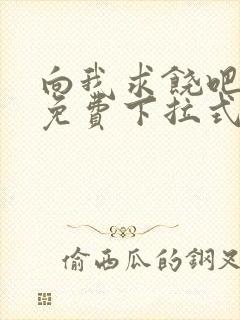 向我求饶吧
免費下拉式
偷西瓜的鋼叉